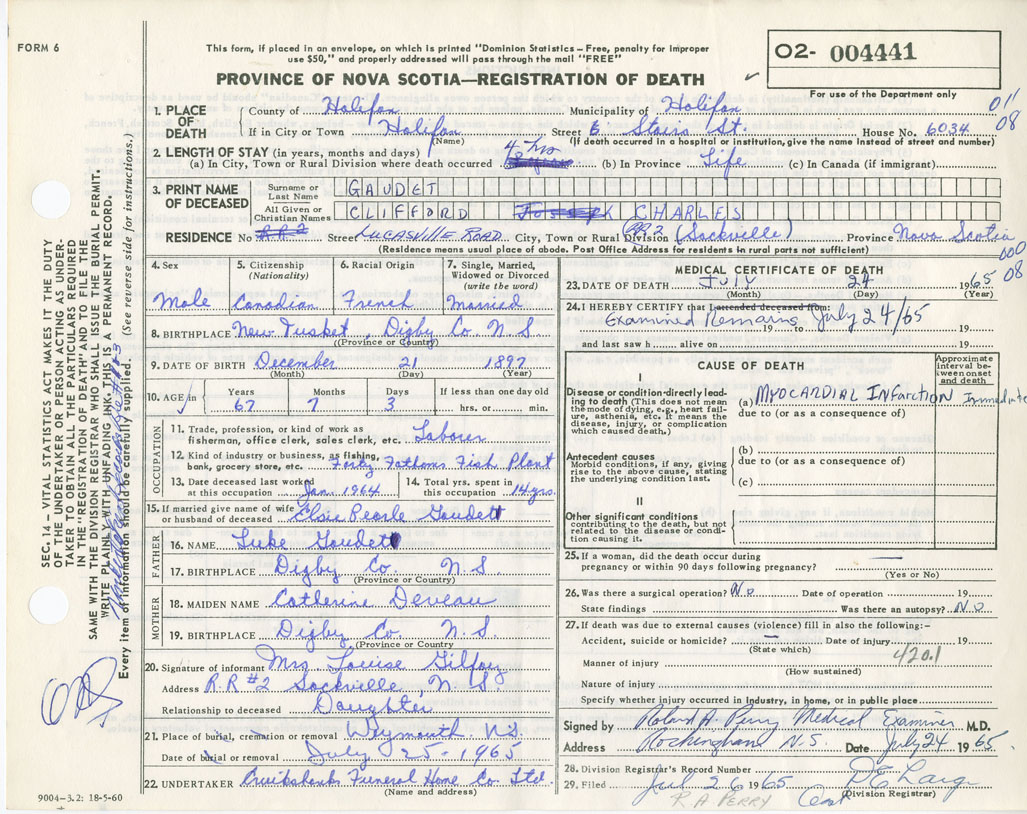 FORM 6
This form, if placed in an envelope, on which is printed "Dominion Statistics – Free, penalty for improper
use $50," and properly addressed will pass through the mail "FREE"
PROVINCE OF NOVA SCOTIA—REGISTRATION OF DEATH
02- 004441
For use of the Department only
011
08
1. PLACE OF DEATH
County of Halifax Municipality of Halifax
If in City or Town Halifax Street Stairs St. House No. 6034
(Name) (If death occurred in a hospital or institution, give the name instead of street and number)
2. LENGTH OF STAY (in years, months and days)
(a) In City, Town or Rural Division where death occurred 4 hrs (b) In Province Life (c) In Canada (if immigrant)
3. PRINT NAME OF DECEASED
Surname or Last Name GAUDET
All Given or Christian Names CLIFFORD CHARLES
RESIDENCE No RR2 Street LUCASVILLE ROAD City, Town or Rural Division RR2 (Sackville) Province Nova Scotia
(Residence means usual place of abode. Post Office Address for residents in rural parts not sufficient)
000
08
4. Sex 5. Citizenship (Nationality) 6. Racial Origin 7. Single, Married, Widowed or Divorced (write the word)
Male Canadian French Married
8. BIRTHPLACE New Tusket, Digby Co N S
(Province or Country)
9. DATE OF BIRTH December 21 1897
(Month) (Day) (Year)
10. AGE Years Months Days If less than one day old
67 7 3 hrs. or min.
OCCUPATION
11. Trade, profession, or kind of work as
fisherman, office clerk, sales clerk, etc. Laborer
12. Kind of industry or business, as fishing,
bank, grocery store, etc. Forty Fathoms Fish Plant
13. Date deceased last worked
at this occupation Jan. 1964
14. Total yrs. spent in
this occupation 14 yrs.
15. If married give name of wife
or husband of deceased Elsie Pearle Gaudett
FATHER
16. NAME Luke Gaudett
17. BIRTHPLACE Digby Co. N. S.
(Province or Country)
MOTHER
18. MAIDEN NAME Catherine Deveau
19. BIRTHPLACE Digby Co. N. S.
(Province or Country)
20. Signature of informant Mrs Louise Gilfoy
Address R.R #2 Sackville, N. S.
Relationship to deceased Daughter
21. Place of burial, cremation or removal Weymouth N.S.
Date of burial or removal July 25 - 1965
22. UNDERTAKER Cruikshanks Funeral Home Co Ltd.
(Name and address)
9004–3.2: 18-5-60
MEDICAL CERTIFICATE OF DEATH
23. DATE OF DEATH JULY 24 1965
(Month) (Day) (Year)
24. I HEREBY CERTIFY that I attended deceased from
Examined Remains 19 to July 24/65 19
and last saw h alive on 19
CAUSE OF DEATH
Approximate interval between onset and death
I
Disease or condition directly leading to death (This does not mean
the mode of dying, e.g., heart failure, asthenia, etc. It means the
disease, injury, or complication
which caused death.)
(a) MYOCARDIAL INFARCTION Immediate
due to (or as a consequence of)
Antecedent causes
Morbid conditions, if any, giving
rise to the above cause, stating
the underlying condition last.
(b)
due to (or as a consequence of)
(c)
II
Other significant conditions
contributing to the death, but not
related to the disease or condition causing it.
25. If a woman, did the death occur during
pregnancy or within 90 days following pregnancy? —
(Yes or No)
26. Was there a surgical operation? No Date of operation 19
State findings Was there an autopsy? No
27. If death was due to external causes (violence) fill in also the following:-
Accident, suicide or homicide? — Date of injury 19
(State which)
420.1
Manner of injury
(How sustained)
Nature of injury
Specify whether injury occurred in industry, in home, or in public place
Signed by Roland A. Perry Medical Examiner M.D.
Address Rockingham N.S. Date July 24 1965
28. Division Registrar's Record Number
29. Filed Jul 26 1965
(Division Registrar)
R A PERRY
SEC. 14 – VITAL STATISTICS ACT MAKES IT THE DUTY
OF THE UNDERTAKER OR PERSON ACTING AS UNDERTAKER TO OBTAIN ALL THE PARTICULARS REQUIRED
IN THE "REGISTRATION OF DEATH" AND TO FILE THE
SAME WITH THE DIVISION REGISTRAR WHO SHALL ISSUE THE BURIAL PERMIT.
WRITE PLAINLY WITH UNFADING INK. THIS IS A PERMANENT RECORD.
Every item of information should be carefully supplied. (See reverse side for instructions.)